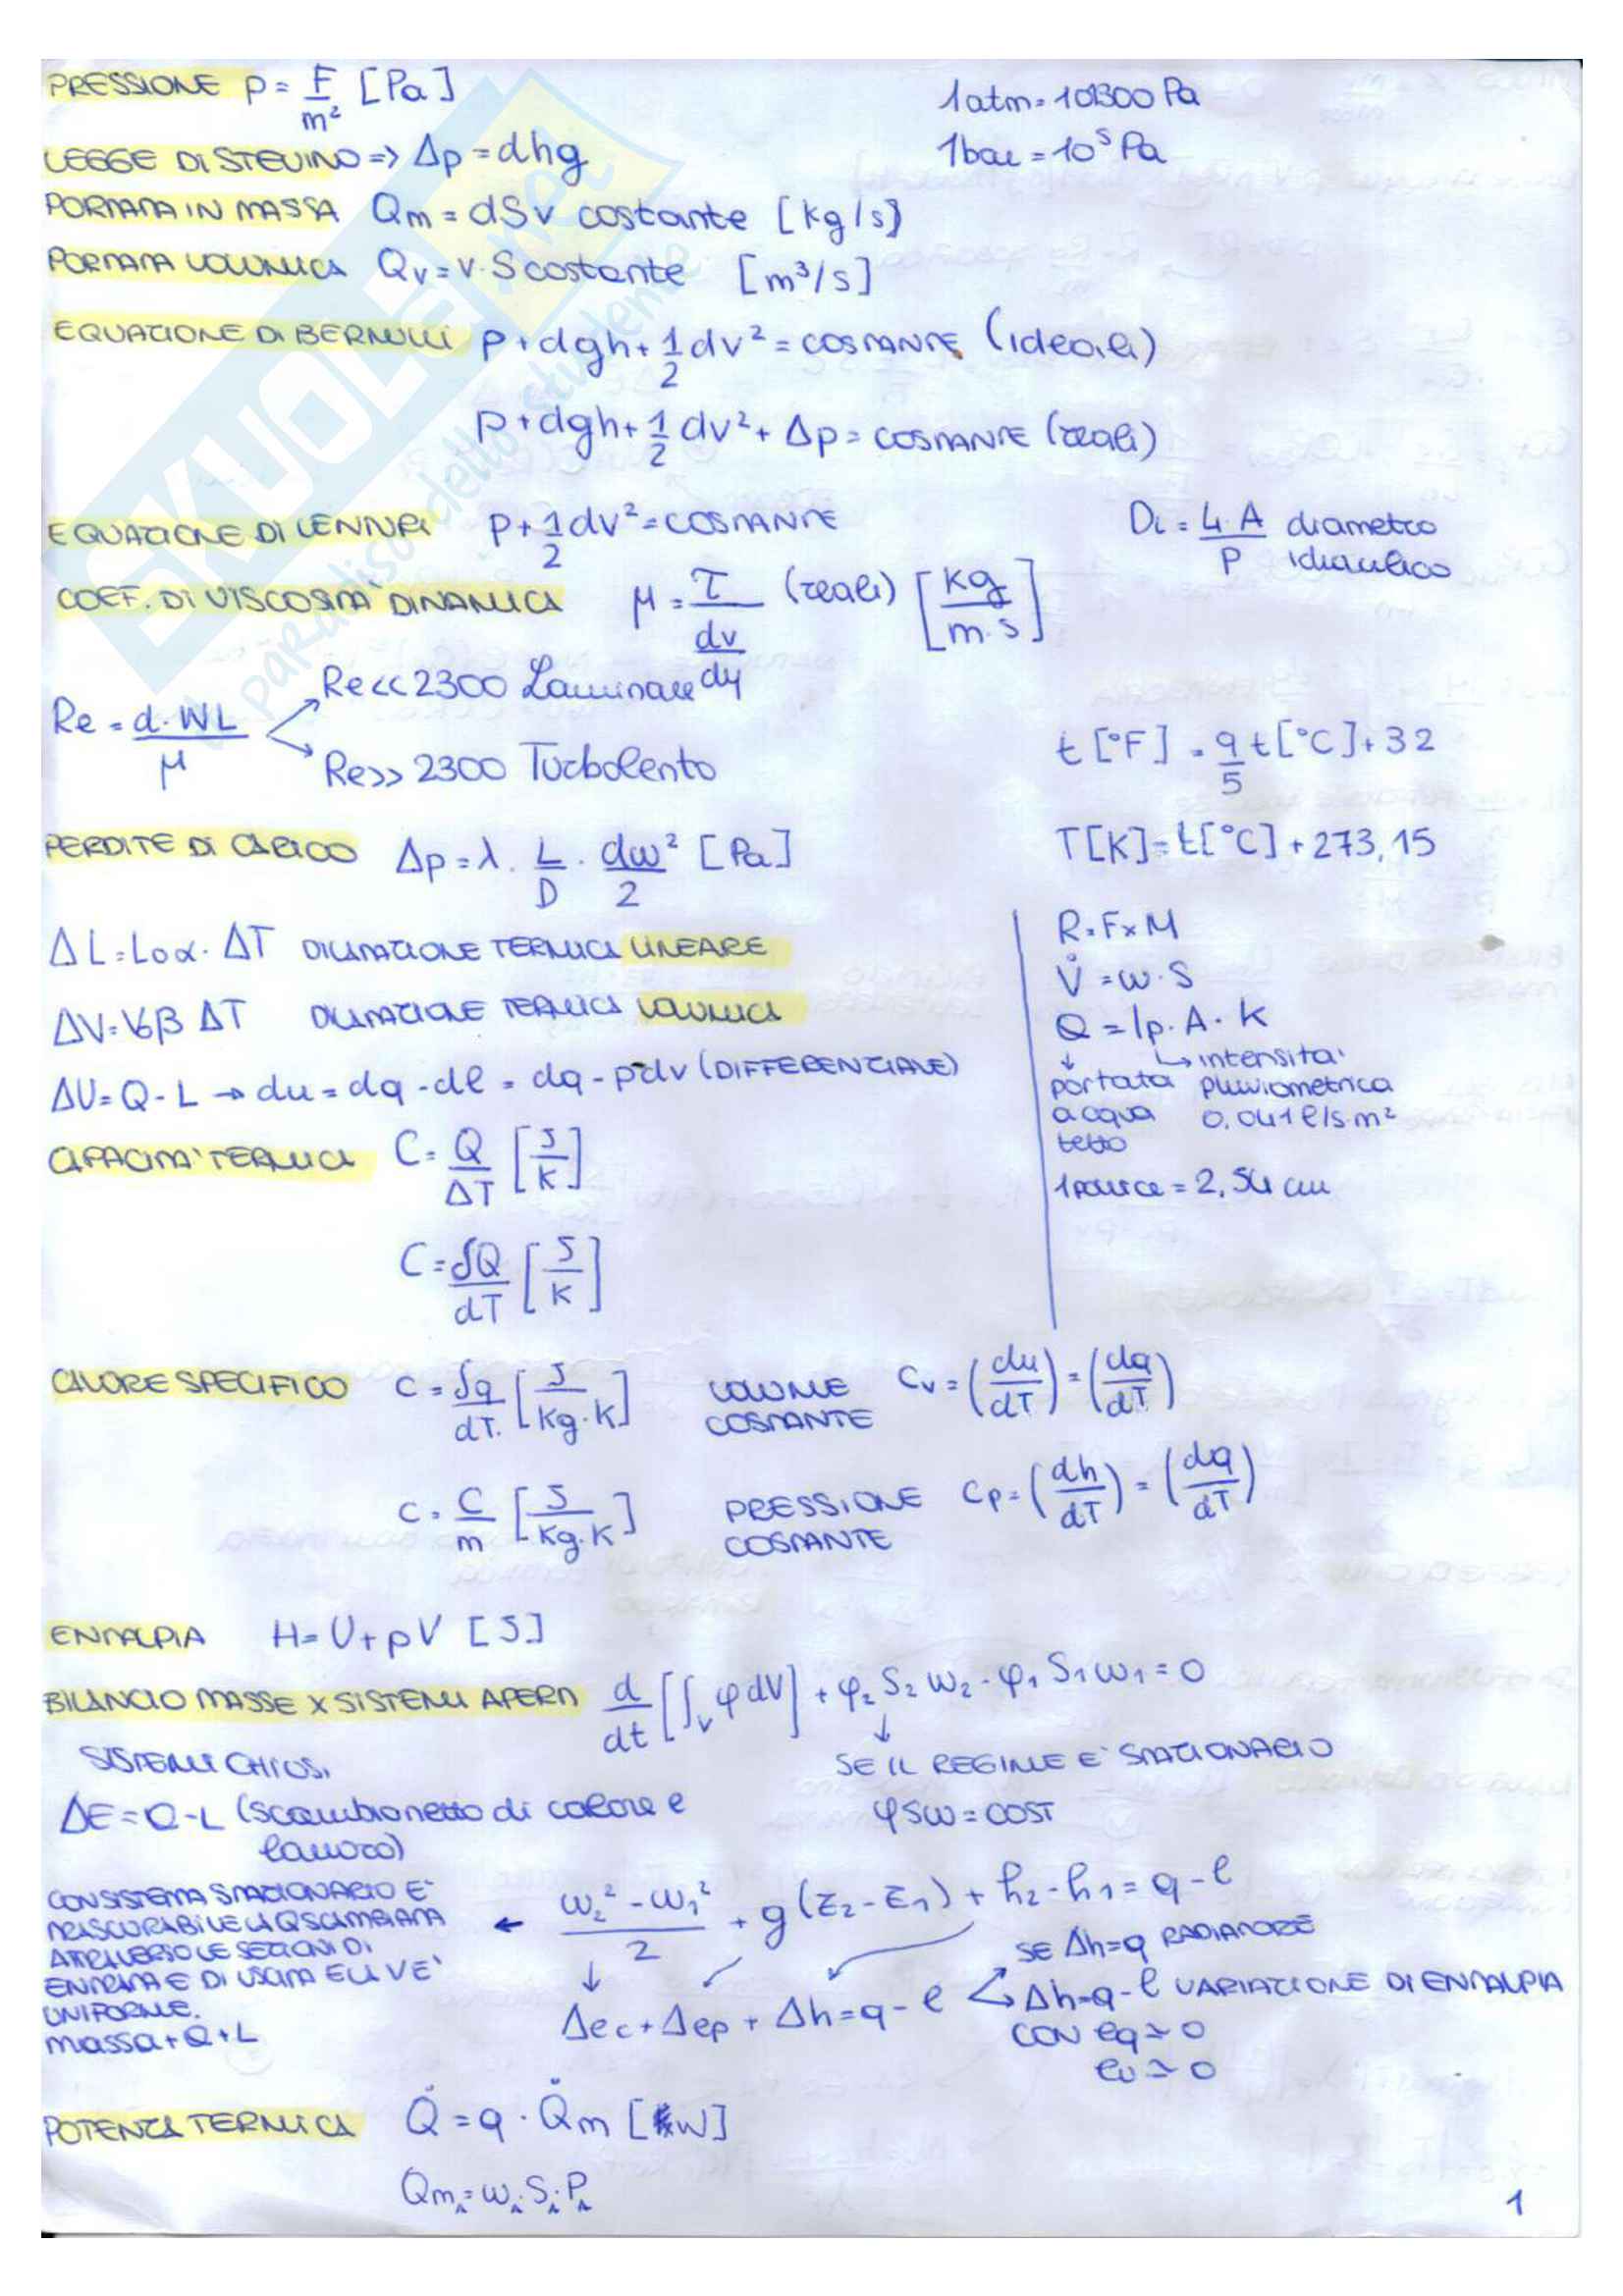 PRESSIONE p = F/m² [Pa]
1atm = 101300 Pa
LEGGE DI STEVINO => Δp = dhg
1bar = 10⁵ Pa
PORTATA IN MASSA Qm = dSv costante [kg/s]
PORTATA VOLUMICA Qv = v·S costante [m³/s]
EQUAZIONE DI BERNULLI p + dgh + 1/2 dv² = COSTANTE (ideali)
p + dgh + 1/2 dv² + Δp = COSTANTE (reali)
EQUAZIONE DI VENTURI p + 1/2 dv² = COSTANTE
Di = 4·A/P diametro idraulico
COEF. DI VISCOSITA' DINAMICA μ = τ/(dv/dy) (reali) [kg/m·s]
Re = d·WL/μ
Re<<2300 Laminare
Re>>2300 Turbolento
t[°F] = 9/5 t[°C] + 32
PERDITE DI CARICO Δp = λ · L/D · dw²/2 [Pa]
T[K] = t[°C] + 273,15
ΔL = Lo α · ΔT DILATAZIONE TERMICA LINEARE
ΔV = Vo β ΔT DILATAZIONE TERMICA VOLUMICA
ΔU = Q - L → du = dq - dl = dq - pdv (DIFFERENZIALE)
R = F x M
V̇ = w·S
Q = Ip · A · K
portata acqua tetto
intensita' pluviometrica 0,041 l/s·m²
1 pollice = 2,54 cm
CAPACITA' TERMICA C = Q/ΔT [J/K]
C = δQ/dT [J/K]
CALORE SPECIFICO c = δq/dT [J/kg·K] VOLUME COSTANTE Cv = (du/dT) = (dq/dT)
c = C/m [J/kg·K] PRESSIONE COSTANTE Cp = (dh/dT) = (dq/dT)
ENTALPIA H = U + pV [J]
BILANCIO MASSE X SISTEMI APERTI d/dt [∫v φ dV] + φ₂ S₂ w₂ - φ₁ S₁ w₁ = 0
SISTEMI CHIUSI
SE IL REGIME E' STAZIONARIO
ΔE = Q - L (scambio netto di calore e
lavoro)
φSw = COST
CON SISTEMA STAZIONARIO E'
TRASCURABILE LA Q SCAMBIATA
ATTRAVERSO LE SEZIONI DI
ENTRATA E DI USCITA E LA V E'
UNIFORME.
massa + Q + L
← (w₂² - w₁²)/2 + g(z₂ - z₁) + h₂ - h₁ = q - l
SE Δh = q RADIATORE
Δec + Δep + Δh = q - l
Δh = q - l VARIAZIONE DI ENTALPIA
CON
POTENZA TERMICA Q̇ = q · Q̇m [W]
1
SKUOLA.net
il paradiso dello studente